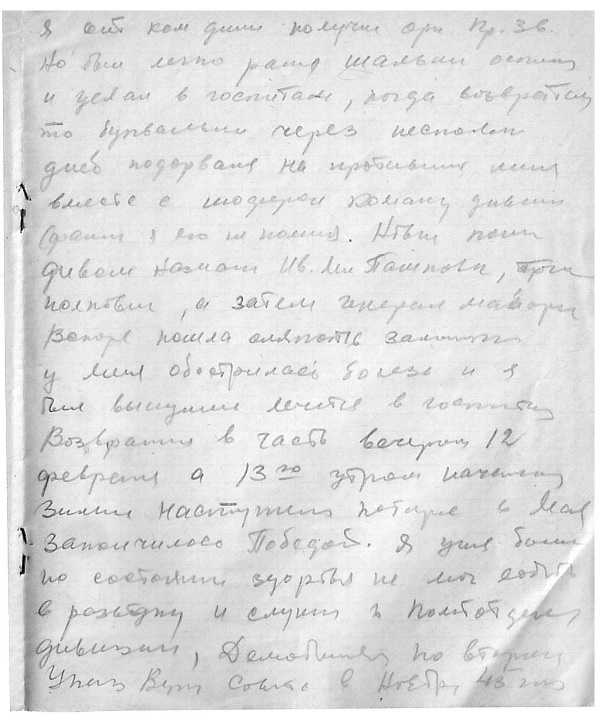 Я от ком дивии получил орд Кр. Зв.
Но был легко ранен шальным осколком
и уехал в госпиталь, когда возвратился
то буквально через несколько
дней подорвался на противот мине
вместе с шофером командир дивизии
я его не помню. Новым
дивизии назначен Ив. Ив Пашков,
полковник, а затем генерал майор
Вскоре пошла слякоть
у меня обострилась болезнь и я
был вынужден лечится в госпитале
Возвратился в часть вечером 12
февраля а 13го утром началось
Зимнее наступление которое в Мая
закончилось Победой. Я уже более
по состоянию здоровья не мог ходить
в разведку и служил в Политотделе
дивизии, Демобилизов по второму
Указу Верх Совета в Ноябре 45 года